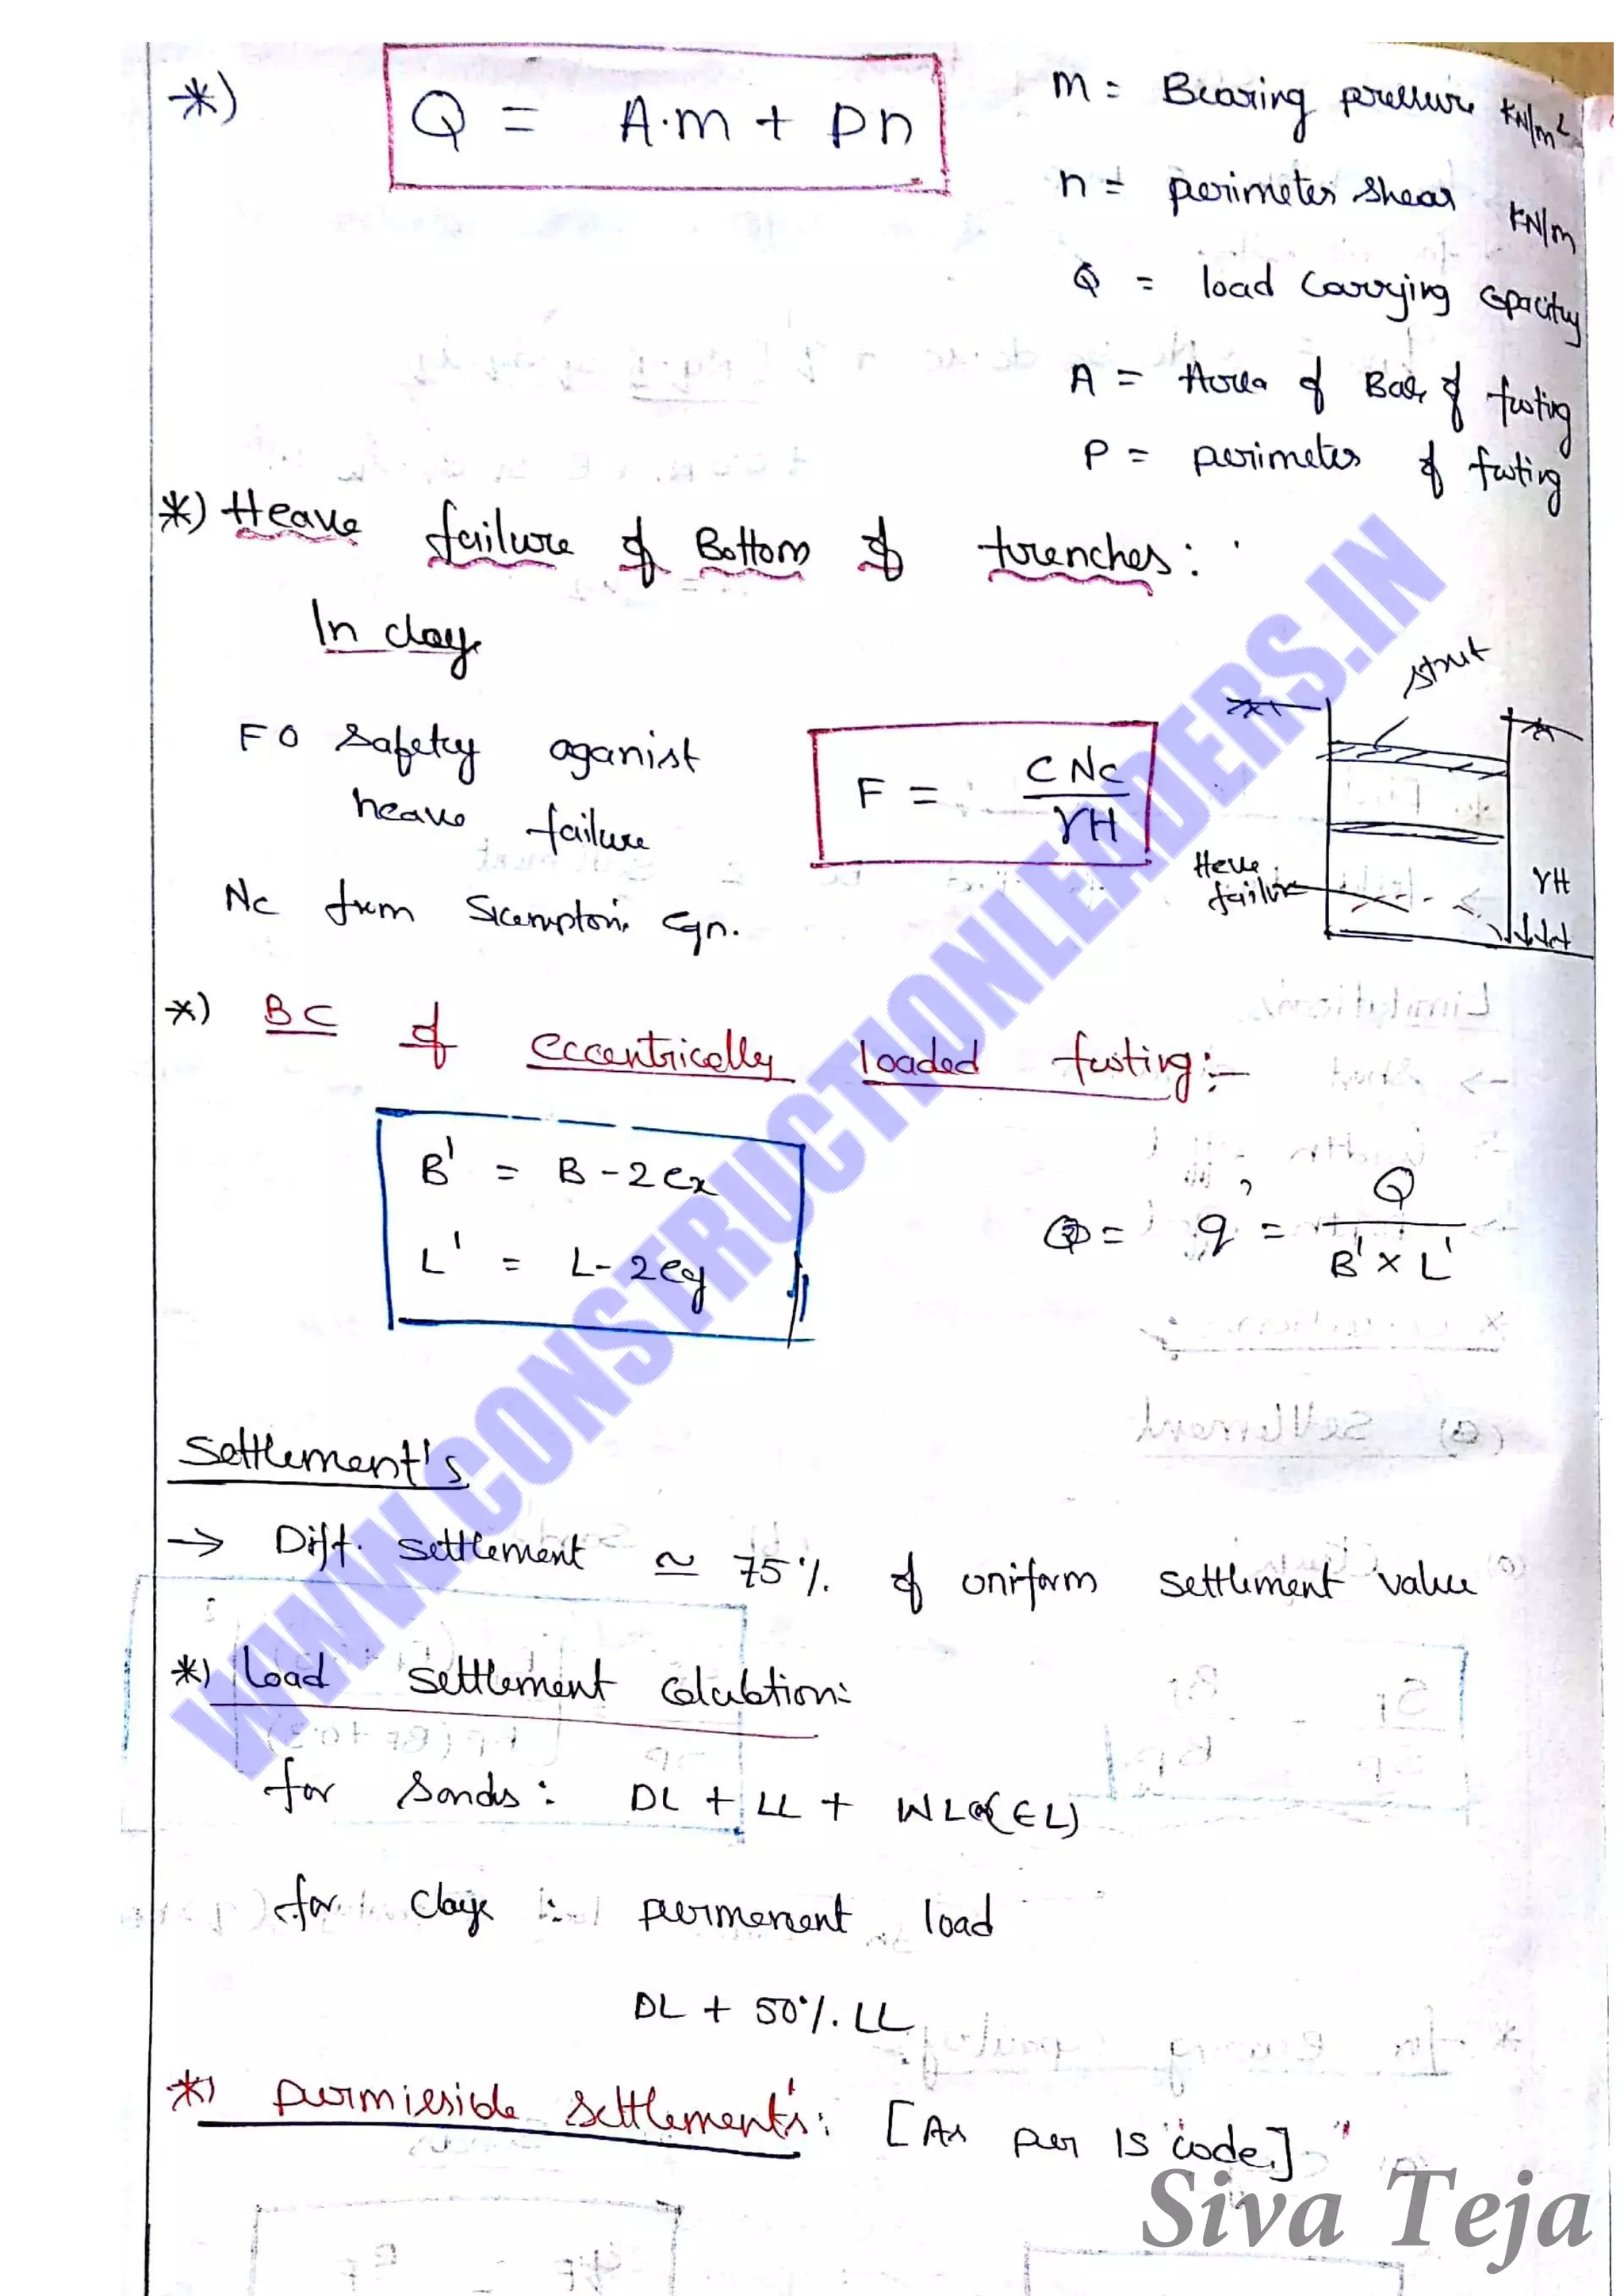 *) Q = A·m + Pn
m = Bearing pressure kN/m²
n = perimeter shear kN/m
Q = load carrying capacity
A = Area of Base of footing
P = perimeter of footing
*) Heave failure of Bottom of trenches:
In clay
F O Safety aganist heave failure
F = C Nc / γH
Nc from Skempton's eqn.
strut
Heave failure
γH
*) BC of eccentrically loaded footing:-
B' = B - 2ex
L' = L - 2ey
q' = Q / B' × L'
Settlement's
→ Diff. settlement ≃ 75% of uniform settlement value
*) Load settlement calculation:
for Sands: DL + LL + WL or (EL)
for clays :- permenent load
DL + 50%. LL
*) permissible settlement's: [As per IS code.]
WWW.CONSTRUCTIONLEADERS.IN
Siva Teja